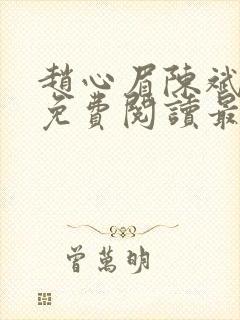 趙心眉陳斌
免費閱讀最
曾萬明